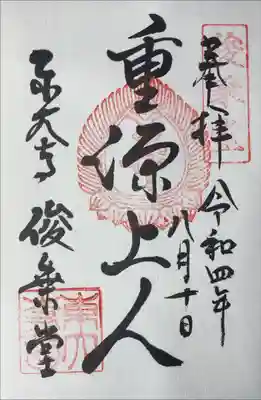 奉拝
令和四年
八月十日
重源上人
東大寺
俊乗堂